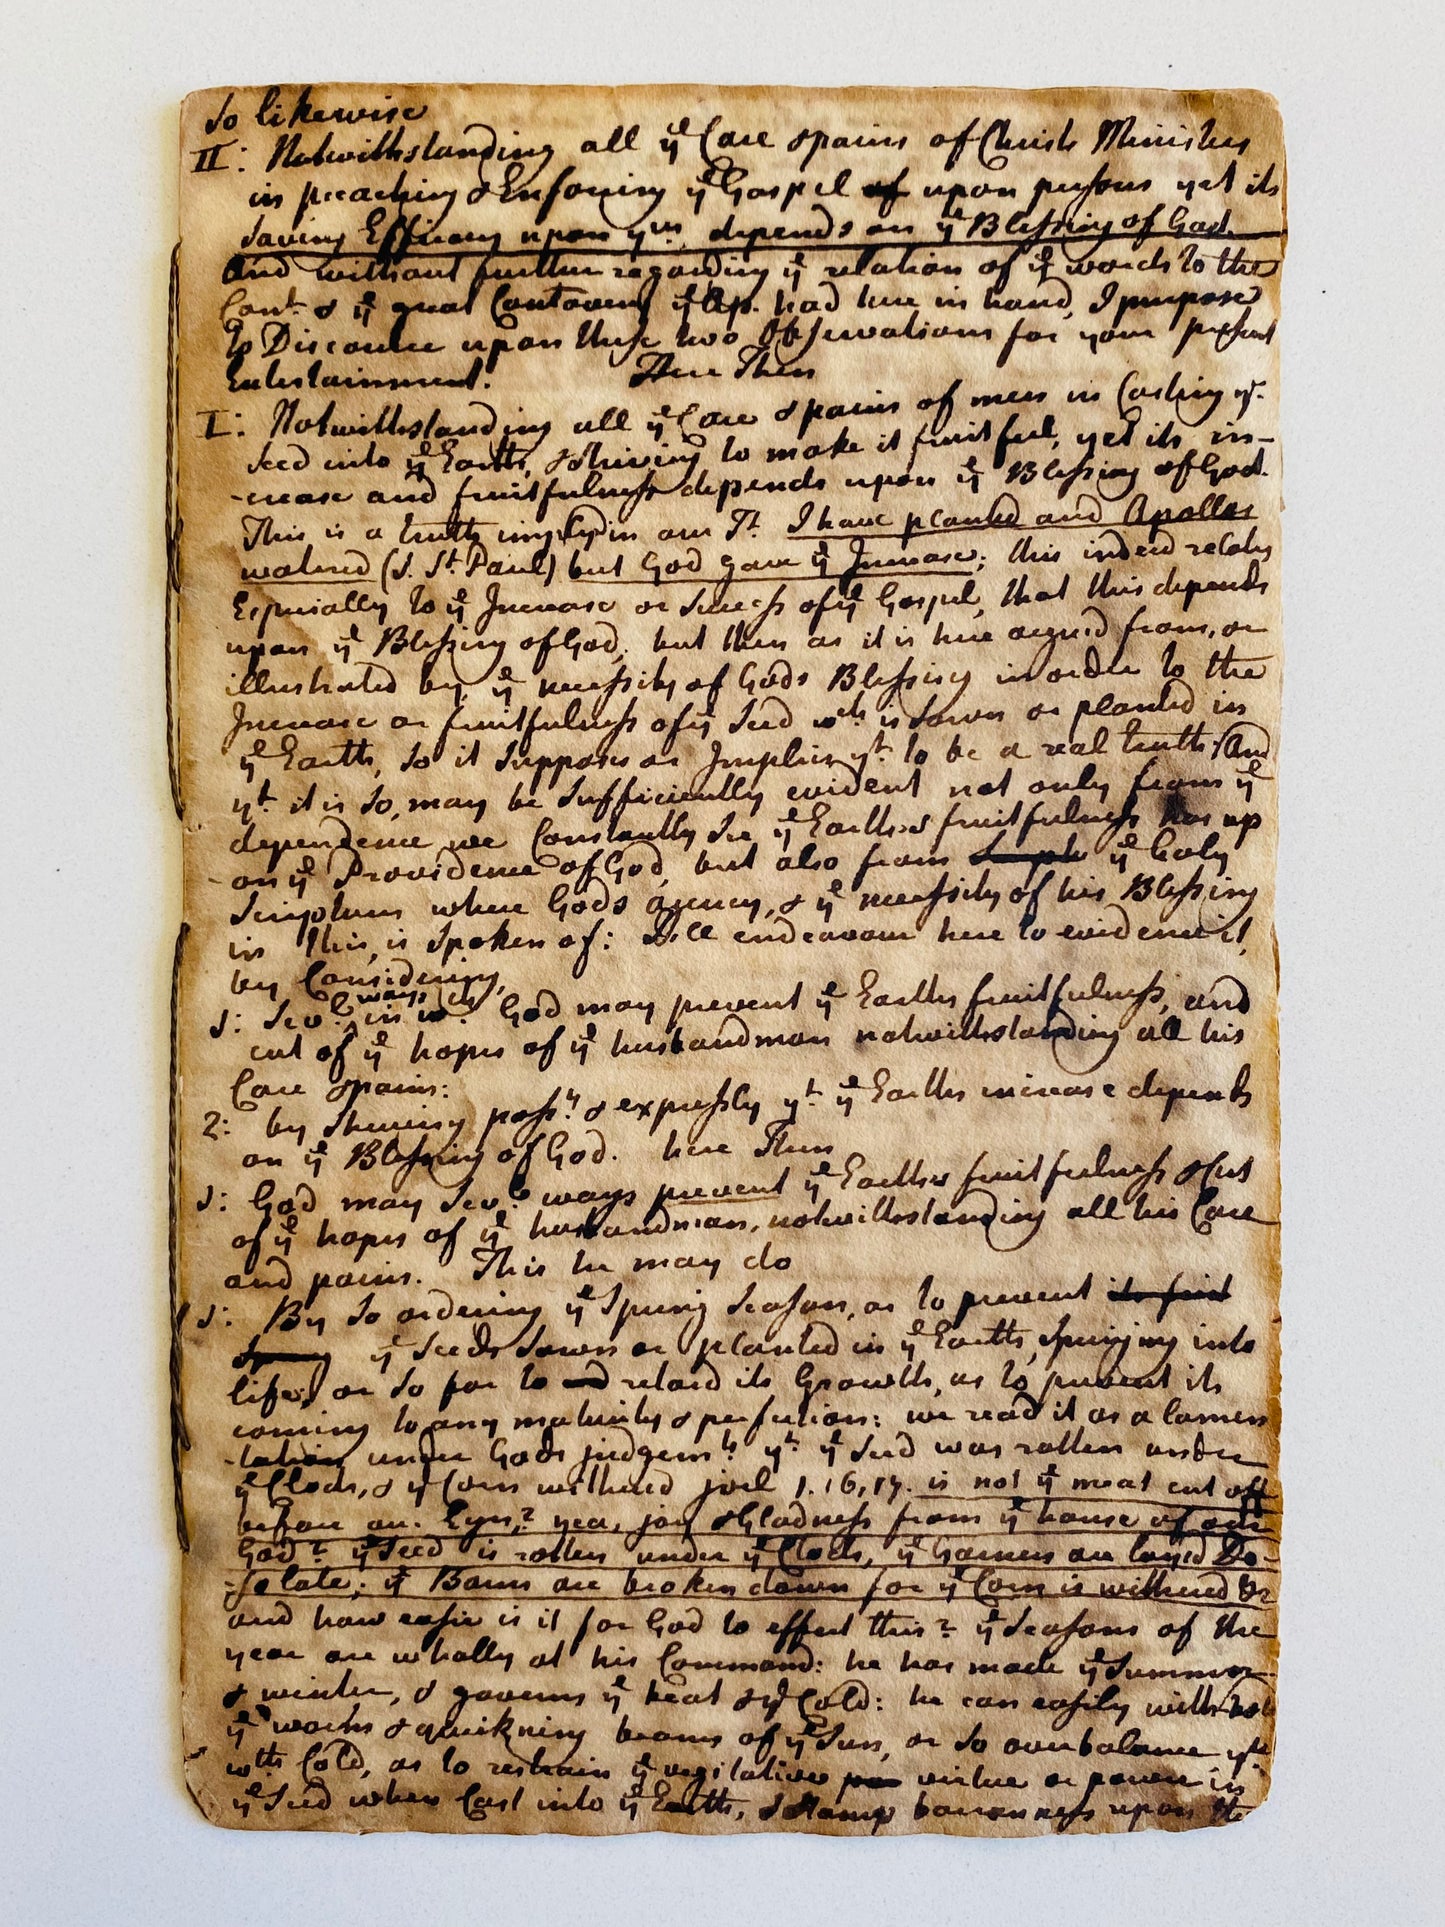 So likewise
II: Notwithstanding all yͤ Care & pains of Christs Ministers
in preaching & Enforcing yͤ Gospel of upon persons yet its
saving Efficacy upon yᵐ, depends on yͤ Blessing of God.
And without further regarding yͤ relation of yͤ words to the
Conᵗ. & yͤ great Controversy yͤ Ap. had here in hand, I purpose
to Discourse upon these two Observations for your present
Entertainment. Here Then
I: Notwithstanding all yͤ Care & pains of men in Casting yͤ
seed into yͤ Earth, & striving to make it fruitful, yet its in-
-crease and fruitfulness depends upon yͤ Blessing of God.
This is a truth imply'd in our Tᵗ. I have planted and Apollos
watered (S. Sᵗ. Paul) but God gave yͤ Increase; this indeed relates
Especially to yͤ Increase or success of yͤ Gospel, that this depends
upon yͤ Blessing of God, but then as it is here argued from, or
illustrated by, yͤ necessity of Gods Blessing in order to the
Increase or fruitfulness of yͤ seed wᶜʰ is sown or planted in
yͤ Earth, so it supposes or Implies yᵗ. to be a real truth: And
yᵗ. it is so, may be sufficiently evident not only from yͤ
dependence we Constantly see yͤ Earths fruitfulness has up
-on yͤ Providence of God, but also from yͤ holy
Scripture where Gods agency, & yͤ necessity of his Blessing
in this, is spoken of: I'll endeavour here to evidence it,
by Considering,
1: Sevˡ. ways in wᶜʰ. God may prevent yͤ Earths fruitfulness, and
cut of yͤ hopes of yͤ husbandman notwithstanding all his
Care & pains:
2: by shewing possᵗˡʸ & expressly yᵗ. yͤ Earths increase depends
on yͤ Blessing of God. here Then
1: God may sevˡ. ways prevent yͤ Earths fruitfulness & Cut
of yͤ hopes of yͤ husbandman, notwithstanding all his Care
and pains. This he may do
1: By so ordering yͤ Spring Season, as to prevent its fruit
Spring yͤ Seeds sown or planted in yͤ Earth, springing into
life; or so far to retard its Growth, as to prevent its
coming to any maturity & perfection: we read it as a lamen
-tation under Gods judgemᵗˢ yᵗ. yͤ seed was rotten under
yͤ Clods, & yͤ Corn withered joel 1.16,17. is not yͤ meat cut off
before our Eyes? yea, joy & Gladness from yͤ house of our
God? yͤ seed is rotten under yͤ Clods, yͤ Garners are layed De-
-solate; yͤ Barns are broken down for yͤ Corn is withered &c
and how easie is it for God to effect this? yͤ seasons of the
year are wholly at his Command: he has made yͤ Summer
& winter, & governs yͤ heat & yͤ Cold: he can easily withhold
yͤ warm & quickning beams of yͤ Sun, or so overbalance yᵐ
wᵗʰ Cold, as to restrain yͤ vegitative virtue or power in
yͤ seed when Cast into yͤ Earth, & stamp barronness upon the